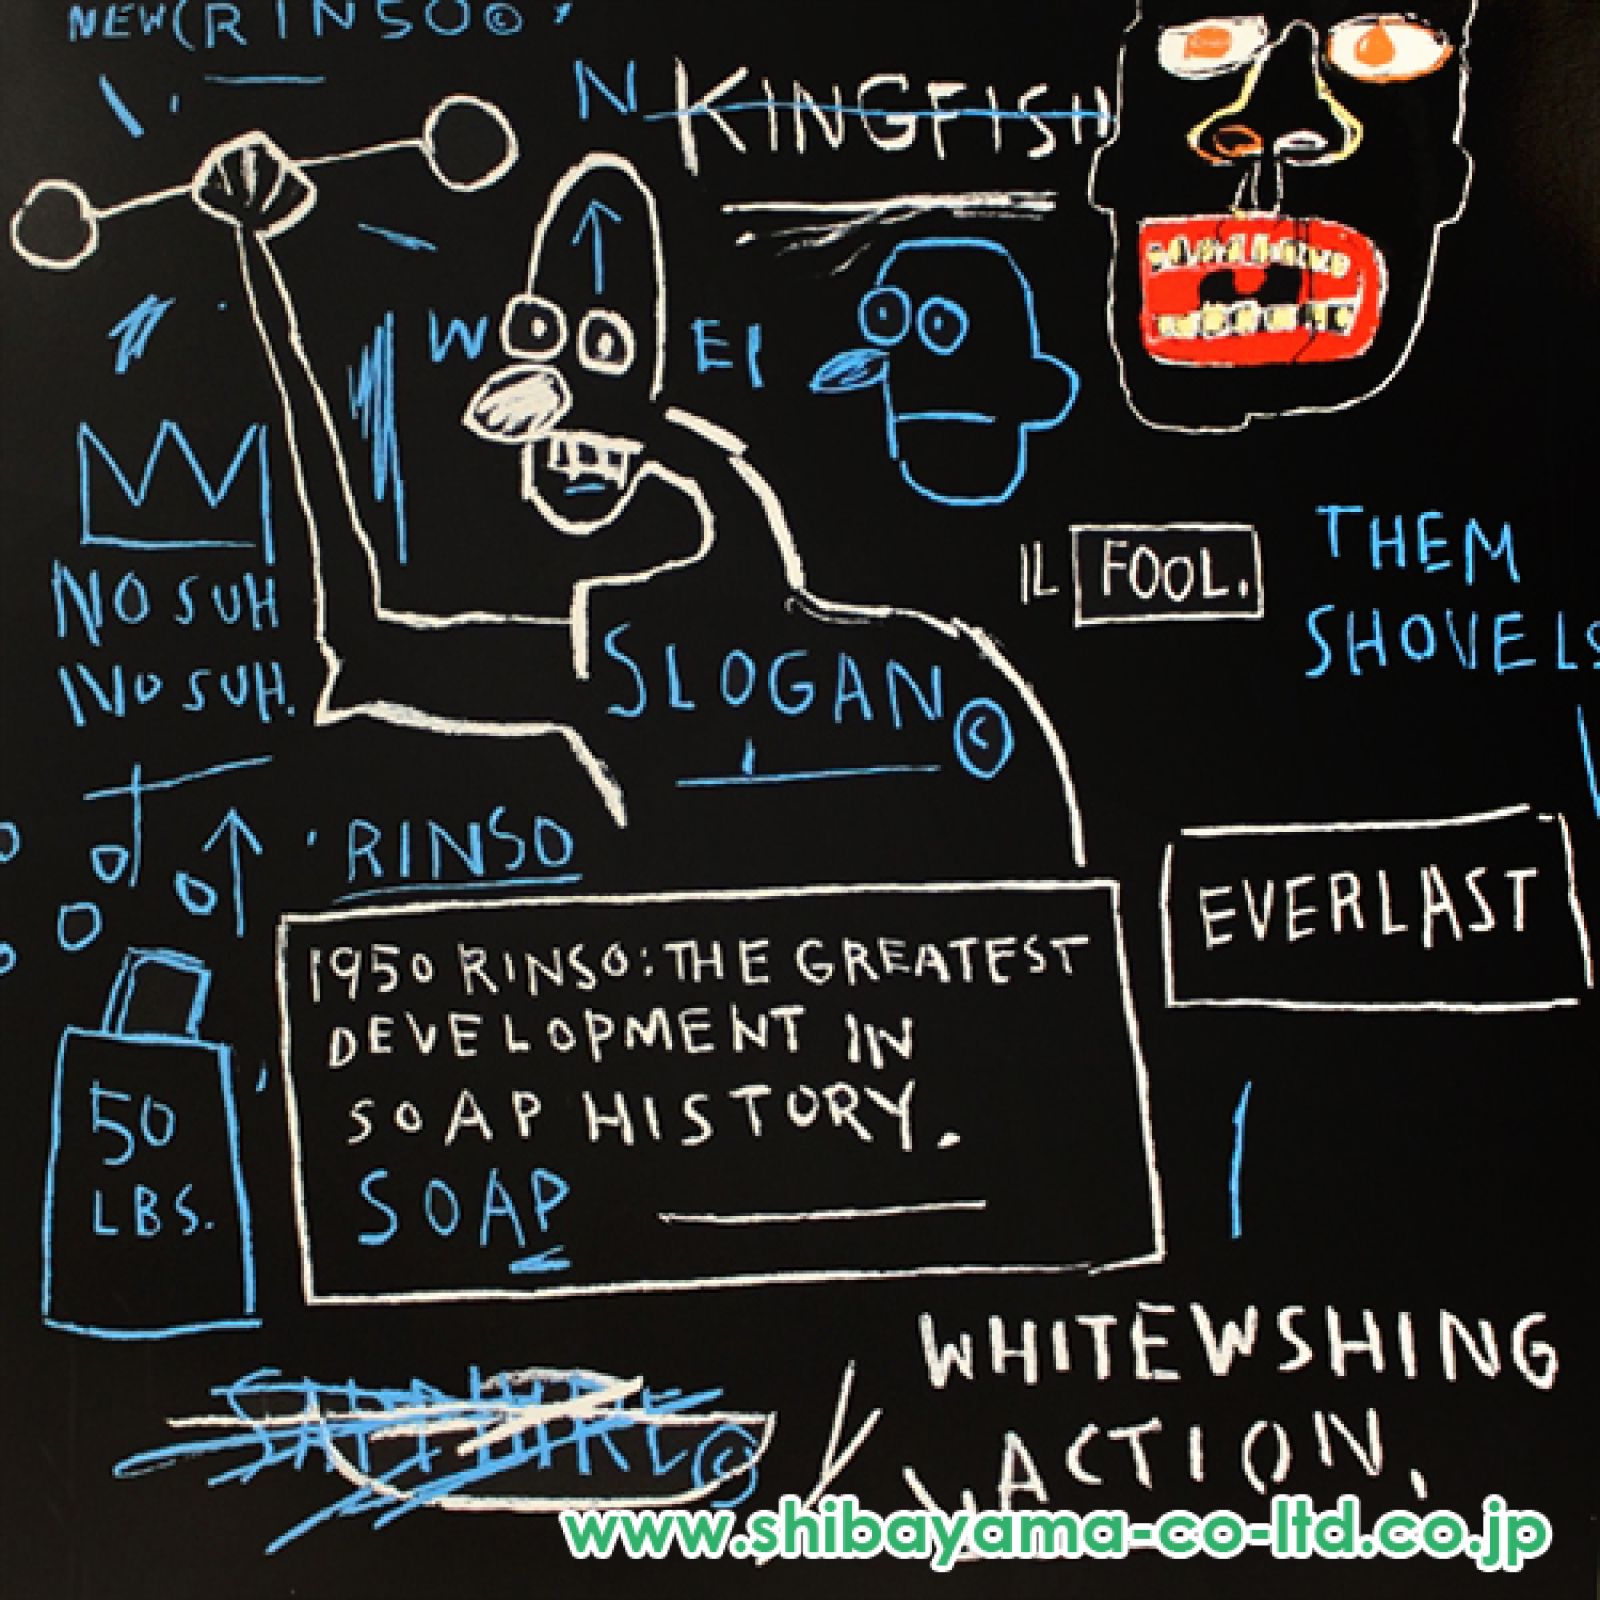 NEW(RINSO©
N KINGFISH
W EI
IL FOOL.
THEM
SHOVELS
NO SUH
NO SUH.
SLOGAN ©
RINSO
EVERLAST
1950 RINSO: THE GREATEST
DEVELOPMENT IN
SOAP HISTORY.
SOAP
50
LBS.
WHITEWSHING
ACTION.
SAPPHIRE ©
www.shibayama-co-ltd.co.jp